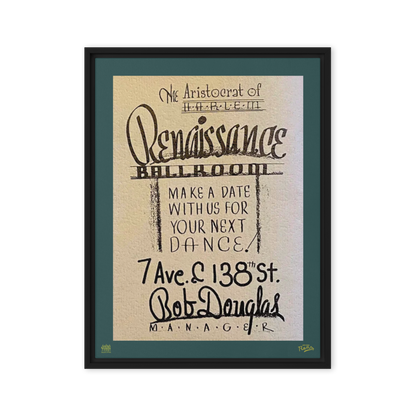 The Aristocrat of
HARLEM
Renaissance
BALLROOM
MAKE A DATE
WITH US FOR
YOUR NEXT
DANCE!
7 Ave. & 138th St.
Bob Douglas
M·A·N·A·G·E·R